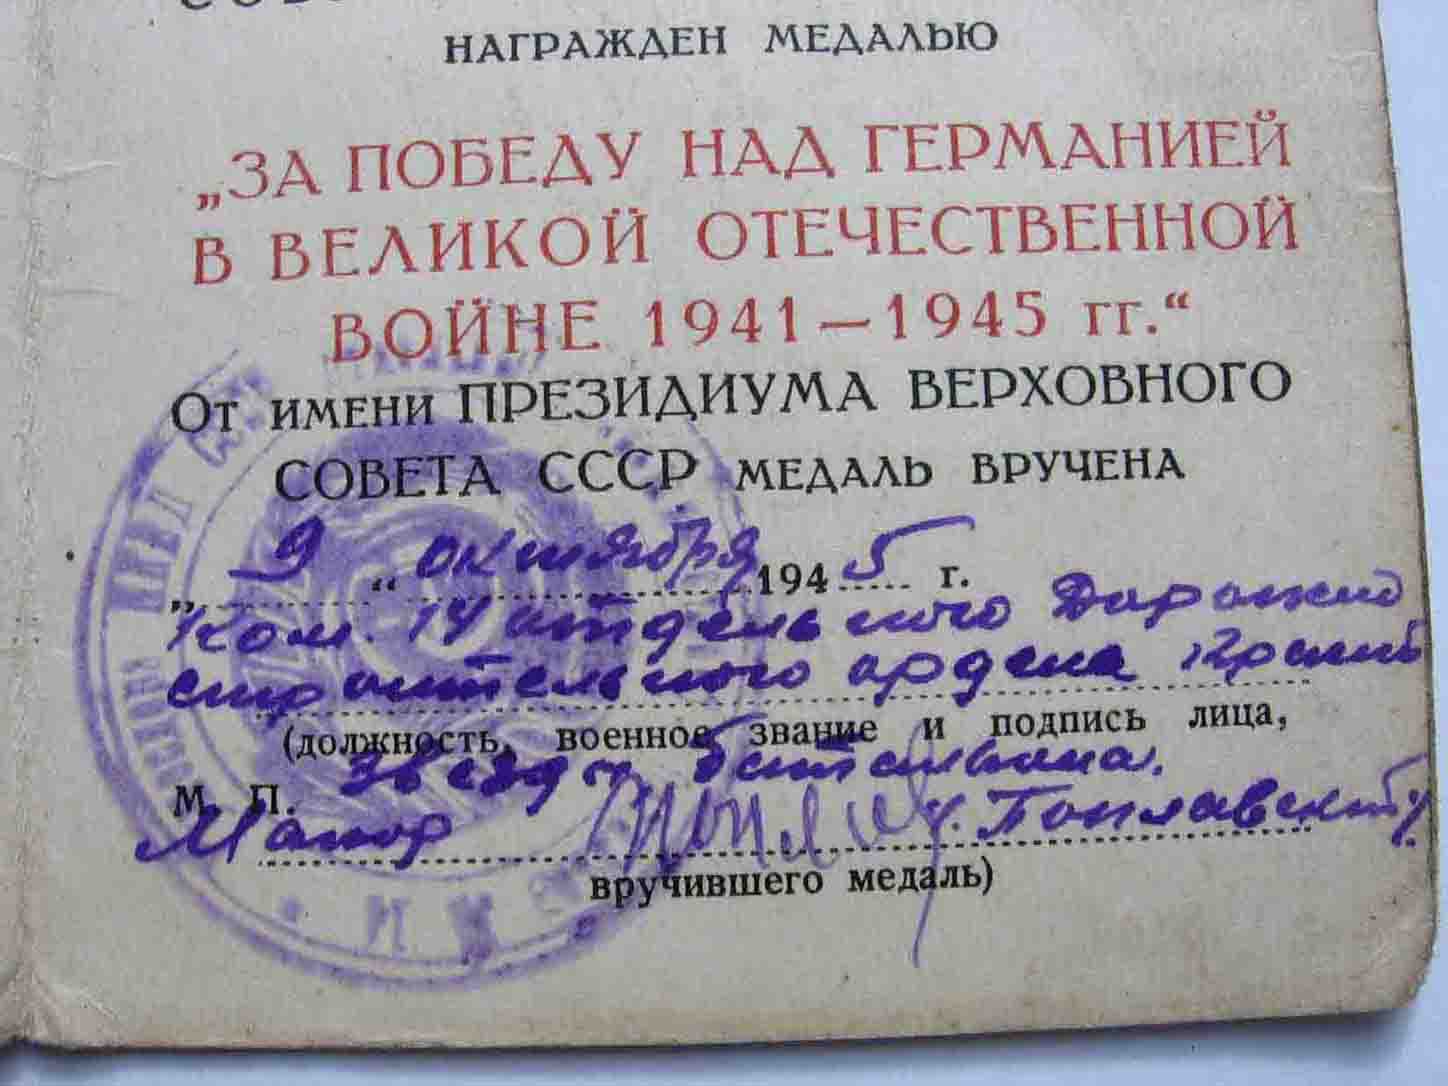 НАГРАЖДЕН МЕДАЛЬЮ
„ЗА ПОБЕДУ НАД ГЕРМАНИЕЙ
В ВЕЛИКОЙ ОТЕЧЕСТВЕННОЙ
ВОЙНЕ 1941—1945 гг.“
От имени ПРЕЗИДИУМА ВЕРХОВНОГО
СОВЕТА СССР МЕДАЛЬ ВРУЧЕНА
„9“ октября 1945 г.
Ком. 14 отдельного Дорожно
строительного ордена Красной
(должность, военное звание и подпись лица,
звезды батальона.
М. П.
Майор /Поплавский/
вручившего медаль)